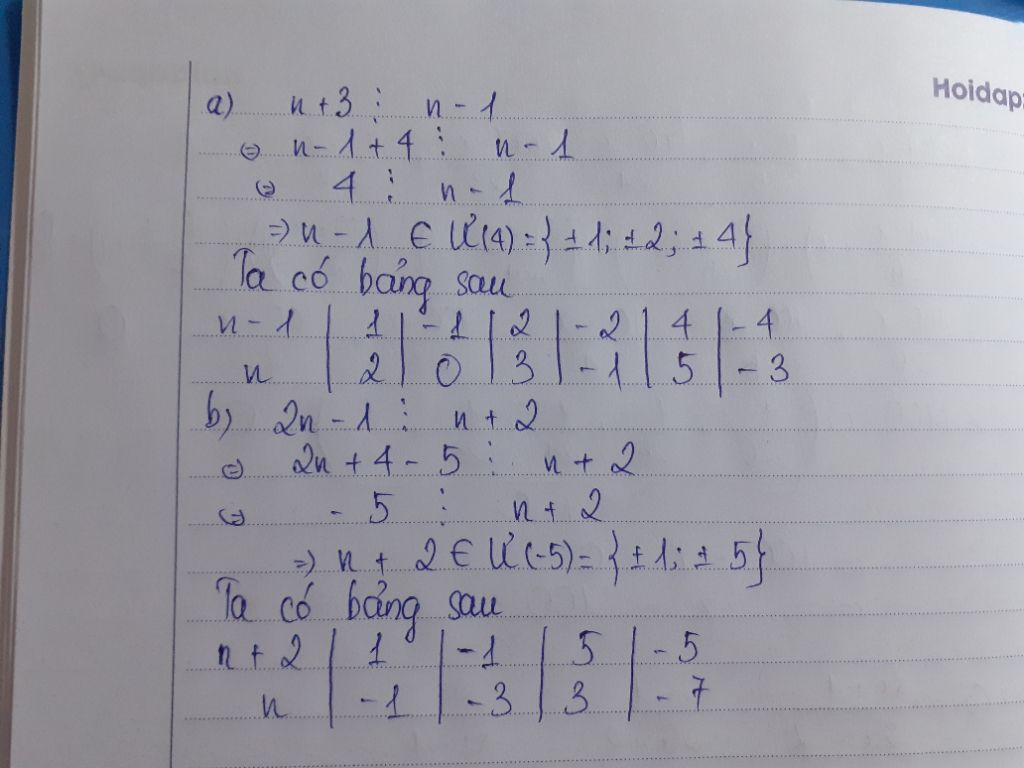 Hoidap
a) n+3 ⋮ n-1
⇔ n-1+4 ⋮ n-1
⇔ 4 ⋮ n-1
⇒ n-1 ∈ Ư(4)={±1; ±2; ±4}
Ta có bảng sau
n-1 | 1 | -1 | 2 | -2 | 4 | -4
n | 2 | 0 | 3 | -1 | 5 | -3
b) 2n-1 ⋮ n+2
⇔ 2n+4-5 ⋮ n+2
⇔ -5 ⋮ n+2
⇒ n+2 ∈ Ư(-5)={±1; ±5}
Ta có bảng sau
n+2 | 1 | -1 | 5 | -5
n | -1 | -3 | 3 | -7